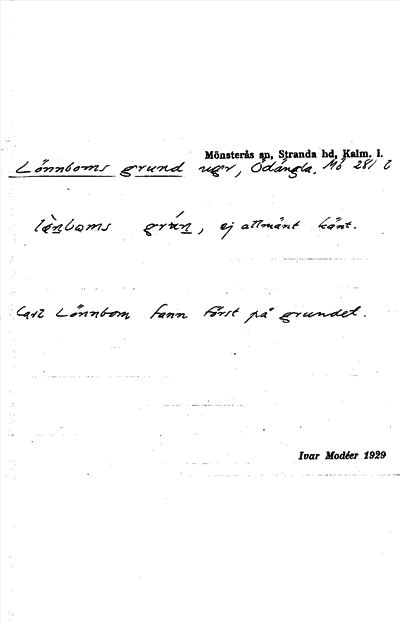 Mönsterås sn, Stranda hd, Kalm. l.
Lönnboms grund ugr, Ödängla. Mö 281 b
lä̀nbɷms grún, ej allmänt känt.
Carl Lönnbom fann först på grundet.
Ivar Modéer 1929